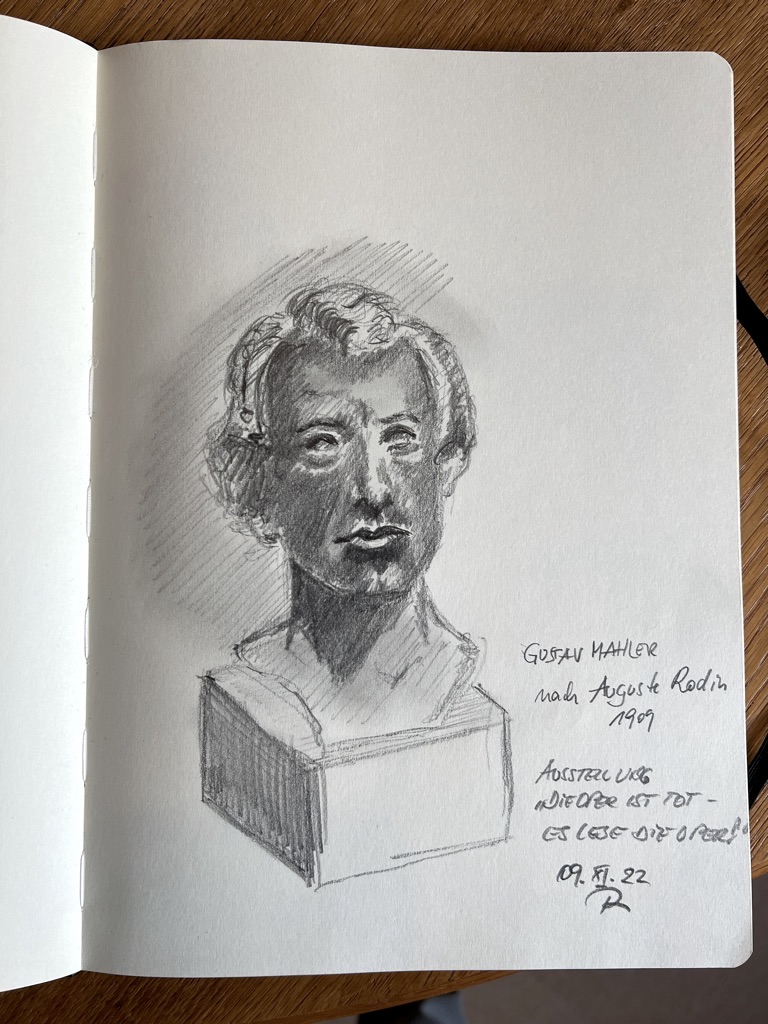 GUSTAV MAHLER
nach Auguste Rodin
1909
AUSSTELLUNG
„DIE OPER IST TOT –
ES LEBE DIE OPER!"
09. XI. 22